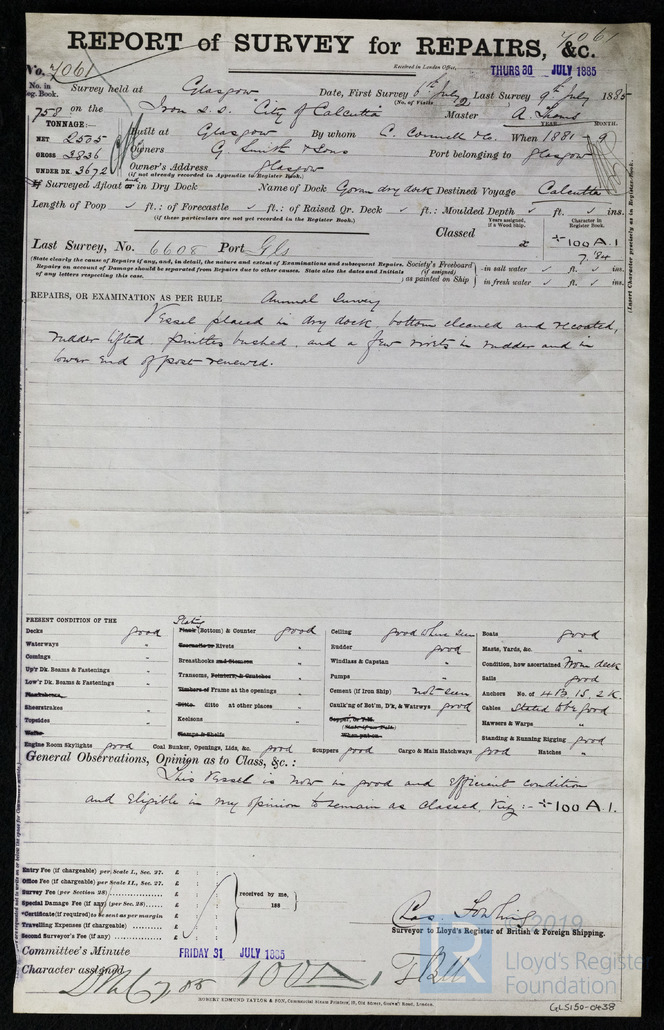 7061
REPORT of SURVEY for REPAIRS, &c.
No. 7061
Received in London Office, THURS 30 JULY 1885
No. in Reg. Book.
Survey held at Glasgow Date, First Survey 6th July Last Survey 9th July 1885
(No. of Visits 2)
758 on the Iron s.s. "City of Calcutta" Master A. Thoms
TONNAGE:—
YEAR. MONTH.
NET 2535 Built at Glasgow By whom C. Connell & Co. When 1881 - 9
GROSS 3836 Owners G. Smith & Sons Port belonging to Glasgow
UNDER DK. 3672 Owner's Address Glasgow
(if not already recorded in Appendix to Register Book.)
If Surveyed Afloat or in Dry Dock and Name of Dock Govan dry dock Destined Voyage Calcutta
Length of Poop ✓ ft.: of Forecastle ✓ ft.: of Raised Qr. Deck ✓ ft.: Moulded Depth ✓ ft. ✓ ins.
(if these particulars are not yet recorded in the Register Book.)
Years assigned, if a Wood Ship.
Character in Register Book.
Classed ÷100 A.1
Last Survey, No. 6608 Port Gls 7.84
(State clearly the cause of Repairs if any, and, in detail, the nature and extent of Examinations and subsequent Repairs.
Repairs on account of Damage should be separated from Repairs due to other causes. State also the dates and Initials
of any letters respecting this case.)
Society's Freeboard (if assigned) as painted on Ship
in salt water ✓ ft. ✓ ins.
in fresh water ✓ ft. ✓ ins.
(Insert Character precisely as in Register Book.
REPAIRS, OR EXAMINATION AS PER RULE Annual Survey
Vessel placed in dry dock, bottom cleaned and recoated,
rudder lifted, pintles bushed, and a few rivets in rudder and in
lower end of post renewed.
PRESENT CONDITION OF THE
Decks good
Waterways "
Comings "
Up'r Dk. Beams & Fastenings "
Low'r Dk. Beams & Fastenings "
Planksheers
Sheerstrakes "
Topsides "
Wales
Plating
Plank (Bottom) & Counter good
Rivets "
Breasthooks and Stemson "
Transoms, Pointers, & Crutches "
Timbers of Frame at the openings "
Ditto. ditto at other places "
Keelsons "
Clamps & Shelfs
Ceiling good where seen
Rudder good
Windlass & Capstan "
Pumps "
Cement (if Iron Ship) not seen
Caulk'ng of Bot'm, D'k, & Watrwys good
When put on
Boats good
Masts, Yards, &c. "
Condition, how ascertained from deck
Sails good
Anchors No. of 4 B. 1 S. 2 K.
Cables Stated to be good
Hawsers & Warps "
Standing & Running Rigging good
Engine Room Skylights good Coal Bunker, Openings, Lids, &c. good Scuppers good Cargo & Main Hatchways good Hatches "
General Observations, Opinion as to Class, &c.:
This Vessel is now in good and Efficient condition
and Eligible in my opinion to remain as classed. Viz:- ÷100 A.1.
Entry Fee (if chargeable) per Scale I., Sec. 27. £
Office Fee (if chargeable) per Scale II., Sec. 27. £
Survey Fee (per Section 28) £
Special Damage Fee (if any) (per Sec. 28) £
*Certificate (if required) to be sent as per margin
Travelling Expenses (if chargeable) £
Second Surveyor's Fee (if any) £
received by me,
188
Surveyor to Lloyd's Register of British & Foreign Shipping.
Committee's Minute FRIDAY 31 JULY 1885
Character assigned 100 A 1
ROBERT EDMUND TAYLOR & SON, Commercial Steam Printers, 19, Old Street, Goswell Road, London.
©2019
LR
Lloyd's Register
Foundation
GLS150-0438